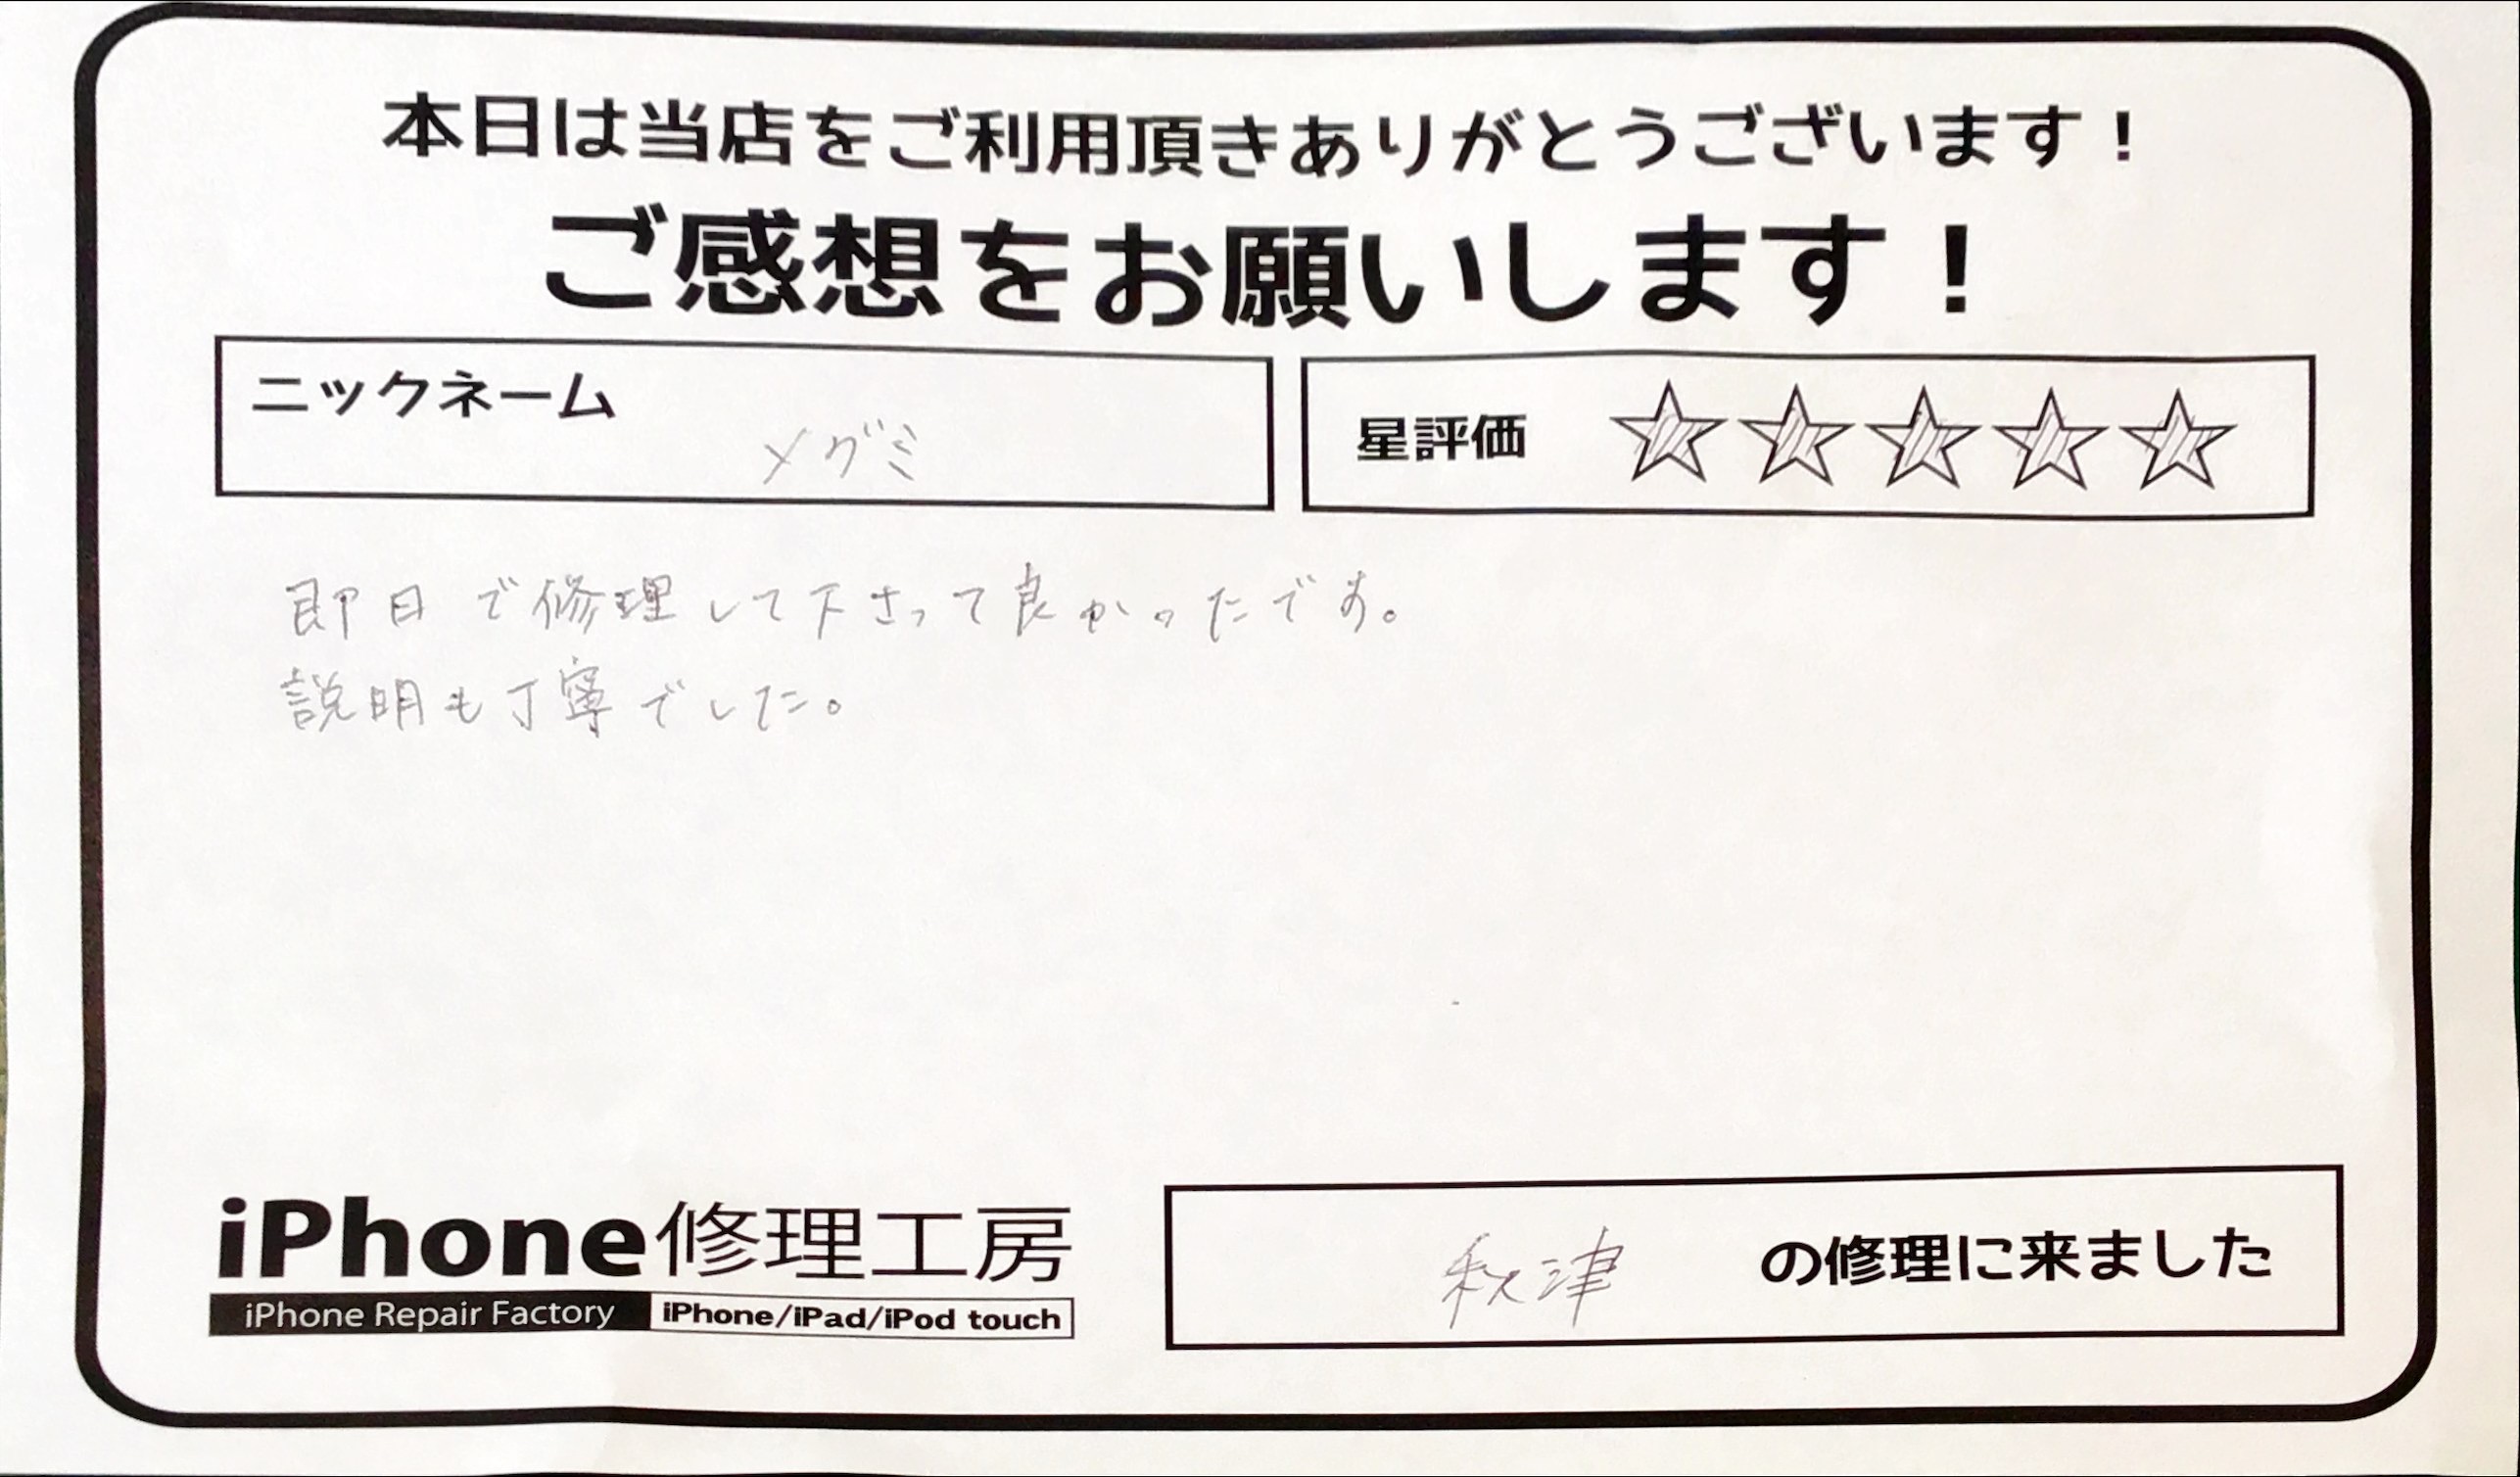 本日は当店をご利用頂きありがとうございます！
ご感想をお願いします！
ニックネーム
メグミ
星評価 ☆☆☆☆☆
即日で修理して下さって良かったです。
説明も丁寧でした。
iPhone修理工房
iPhone Repair Factory iPhone/iPad/iPod touch
秋津 の修理に来ました